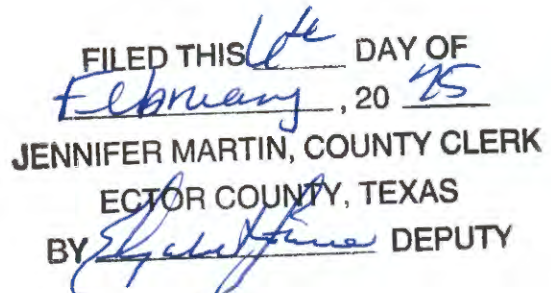 FILED THIS 6th DAY OF
February, 20 25
JENNIFER MARTIN, COUNTY CLERK
ECTOR COUNTY, TEXAS
BY DEPUTY